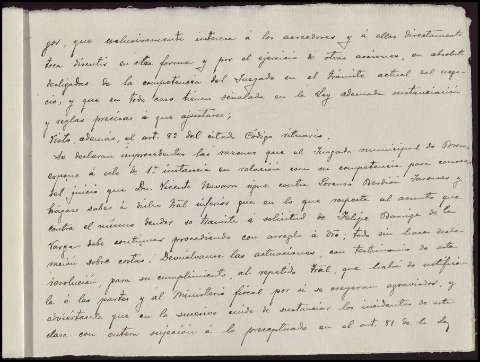 gos, que exclusivamente interesa á los acreedores y á ellos directamente
toca discutir en otra forma y por el ejercicio de otras acciones, en absoluto
desligadas de la competencia del Juzgado en el trámite actual del nego-
cio, y que en todo caso tienen señalada en la Ley adecuada sustanciación
y reglas precisas á que ajustarse;
Visto además, el art. 82 del citado Código rituario.
Se declaran improcedentes las razones que el Juzgado municipal de
expone á este de 1ª instancia en relación con su competencia para conocer
del juicio que D. Vicente Navarro sigue contra Lorenzo y
hágase saber á dicho Tral inferior que en lo que respecta al asunto que
contra el mismo deudor se tramita á solicitud de Felipe de la
Varga debe continuar procediendo con arreglo á dro; todo sin hacer decla-
ración sobre costas. Devuélvanse las actuaciones, con testimonio de esta
resolución, para su cumplimiento, al repetido Tral, que habrá de notificar-
la á las partes y al Ministerio fiscal por si se creyeran agraviados, y
advirtiéndole que en lo sucesivo cuide de sustanciar los incidentes de esta
clase con entera sujeción á lo preceptuado en el art. 81 de la Ley